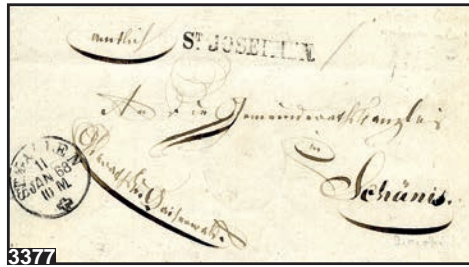 amtlich
ST JOSEPHEN
An die Gemeinderathskanzlei
in
Schänis.
ST GALLEN
11
JAN 68
10 M
3377